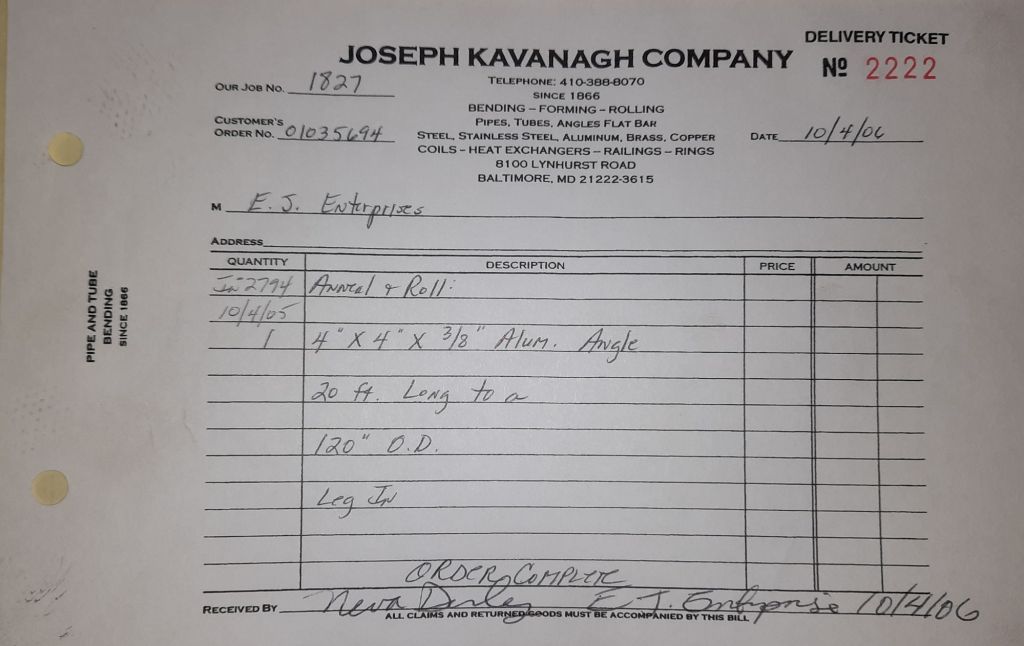 DELIVERY TICKET
JOSEPH KAVANAGH COMPANY
Nº 2222
OUR JOB NO. 1827
TELEPHONE: 410-388-8070
SINCE 1866
BENDING – FORMING – ROLLING
CUSTOMER'S
ORDER NO. 01035694
PIPES, TUBES, ANGLES FLAT BAR
STEEL, STAINLESS STEEL, ALUMINUM, BRASS, COPPER
DATE 10/4/06
COILS – HEAT EXCHANGERS – RAILINGS – RINGS
8100 LYNHURST ROAD
BALTIMORE, MD 21222-3615
M E.J. Enterprises
ADDRESS
QUANTITY DESCRIPTION PRICE AMOUNT
In 2794 Anneal & Roll:
10/4/05
1 4" X 4" X 3/8" Alum. Angle
20 ft. Long to a
120" O.D.
Leg In
ORDER COMPLETE
RECEIVED BY Neva E.J. Enterprise 10/4/06
ALL CLAIMS AND RETURNED GOODS MUST BE ACCOMPANIED BY THIS BILL
PIPE AND TUBE
BENDING
SINCE 1866